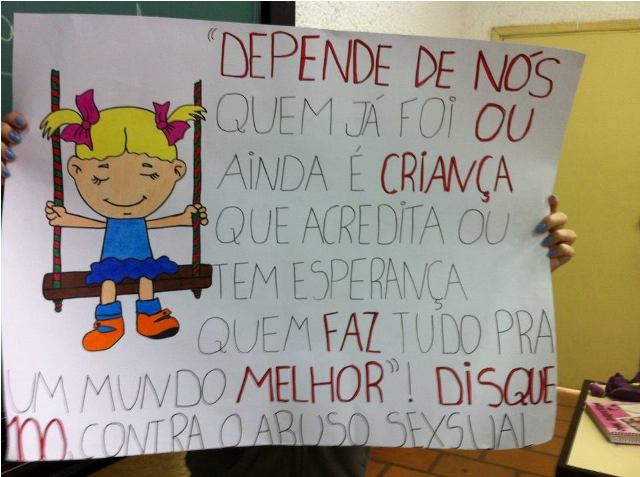 "DEPENDE DE NÓS
QUEM JÁ FOI OU
AINDA É CRIANÇA
QUE ACREDITA OU
TEM ESPERANÇA
QUEM FAZ TUDO PRA
UM MUNDO MELHOR"! DISQUE
CONTRA O ABUSO SEXSUAL